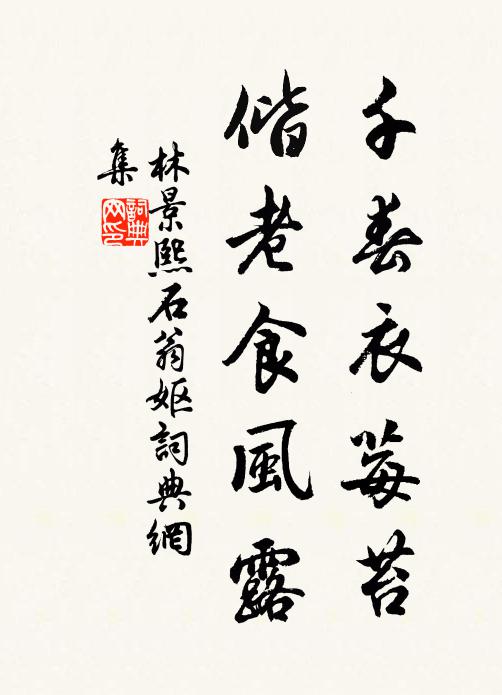 千春衣莓苔
偕老食風露
林景熙石翁妪詞典網
集
詞典
网印